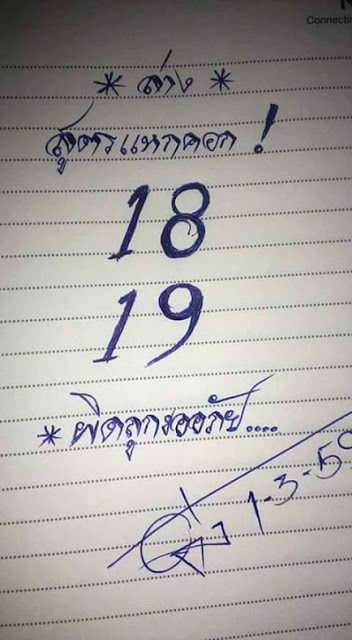 Connecti
* ล่าง *
สูตรแหกคอก !
18
19
* ผิดถูกขออภัย....
1-3-59